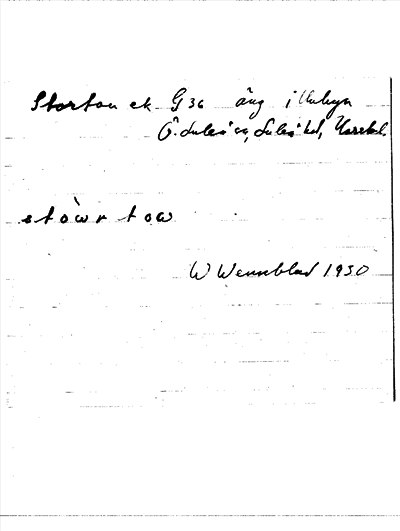 Stortou ek G36 äng i Unbyn
Ö. Luleå sn, Luleå hd, Norrbl.
stòwrtow
W Wennblad 1930